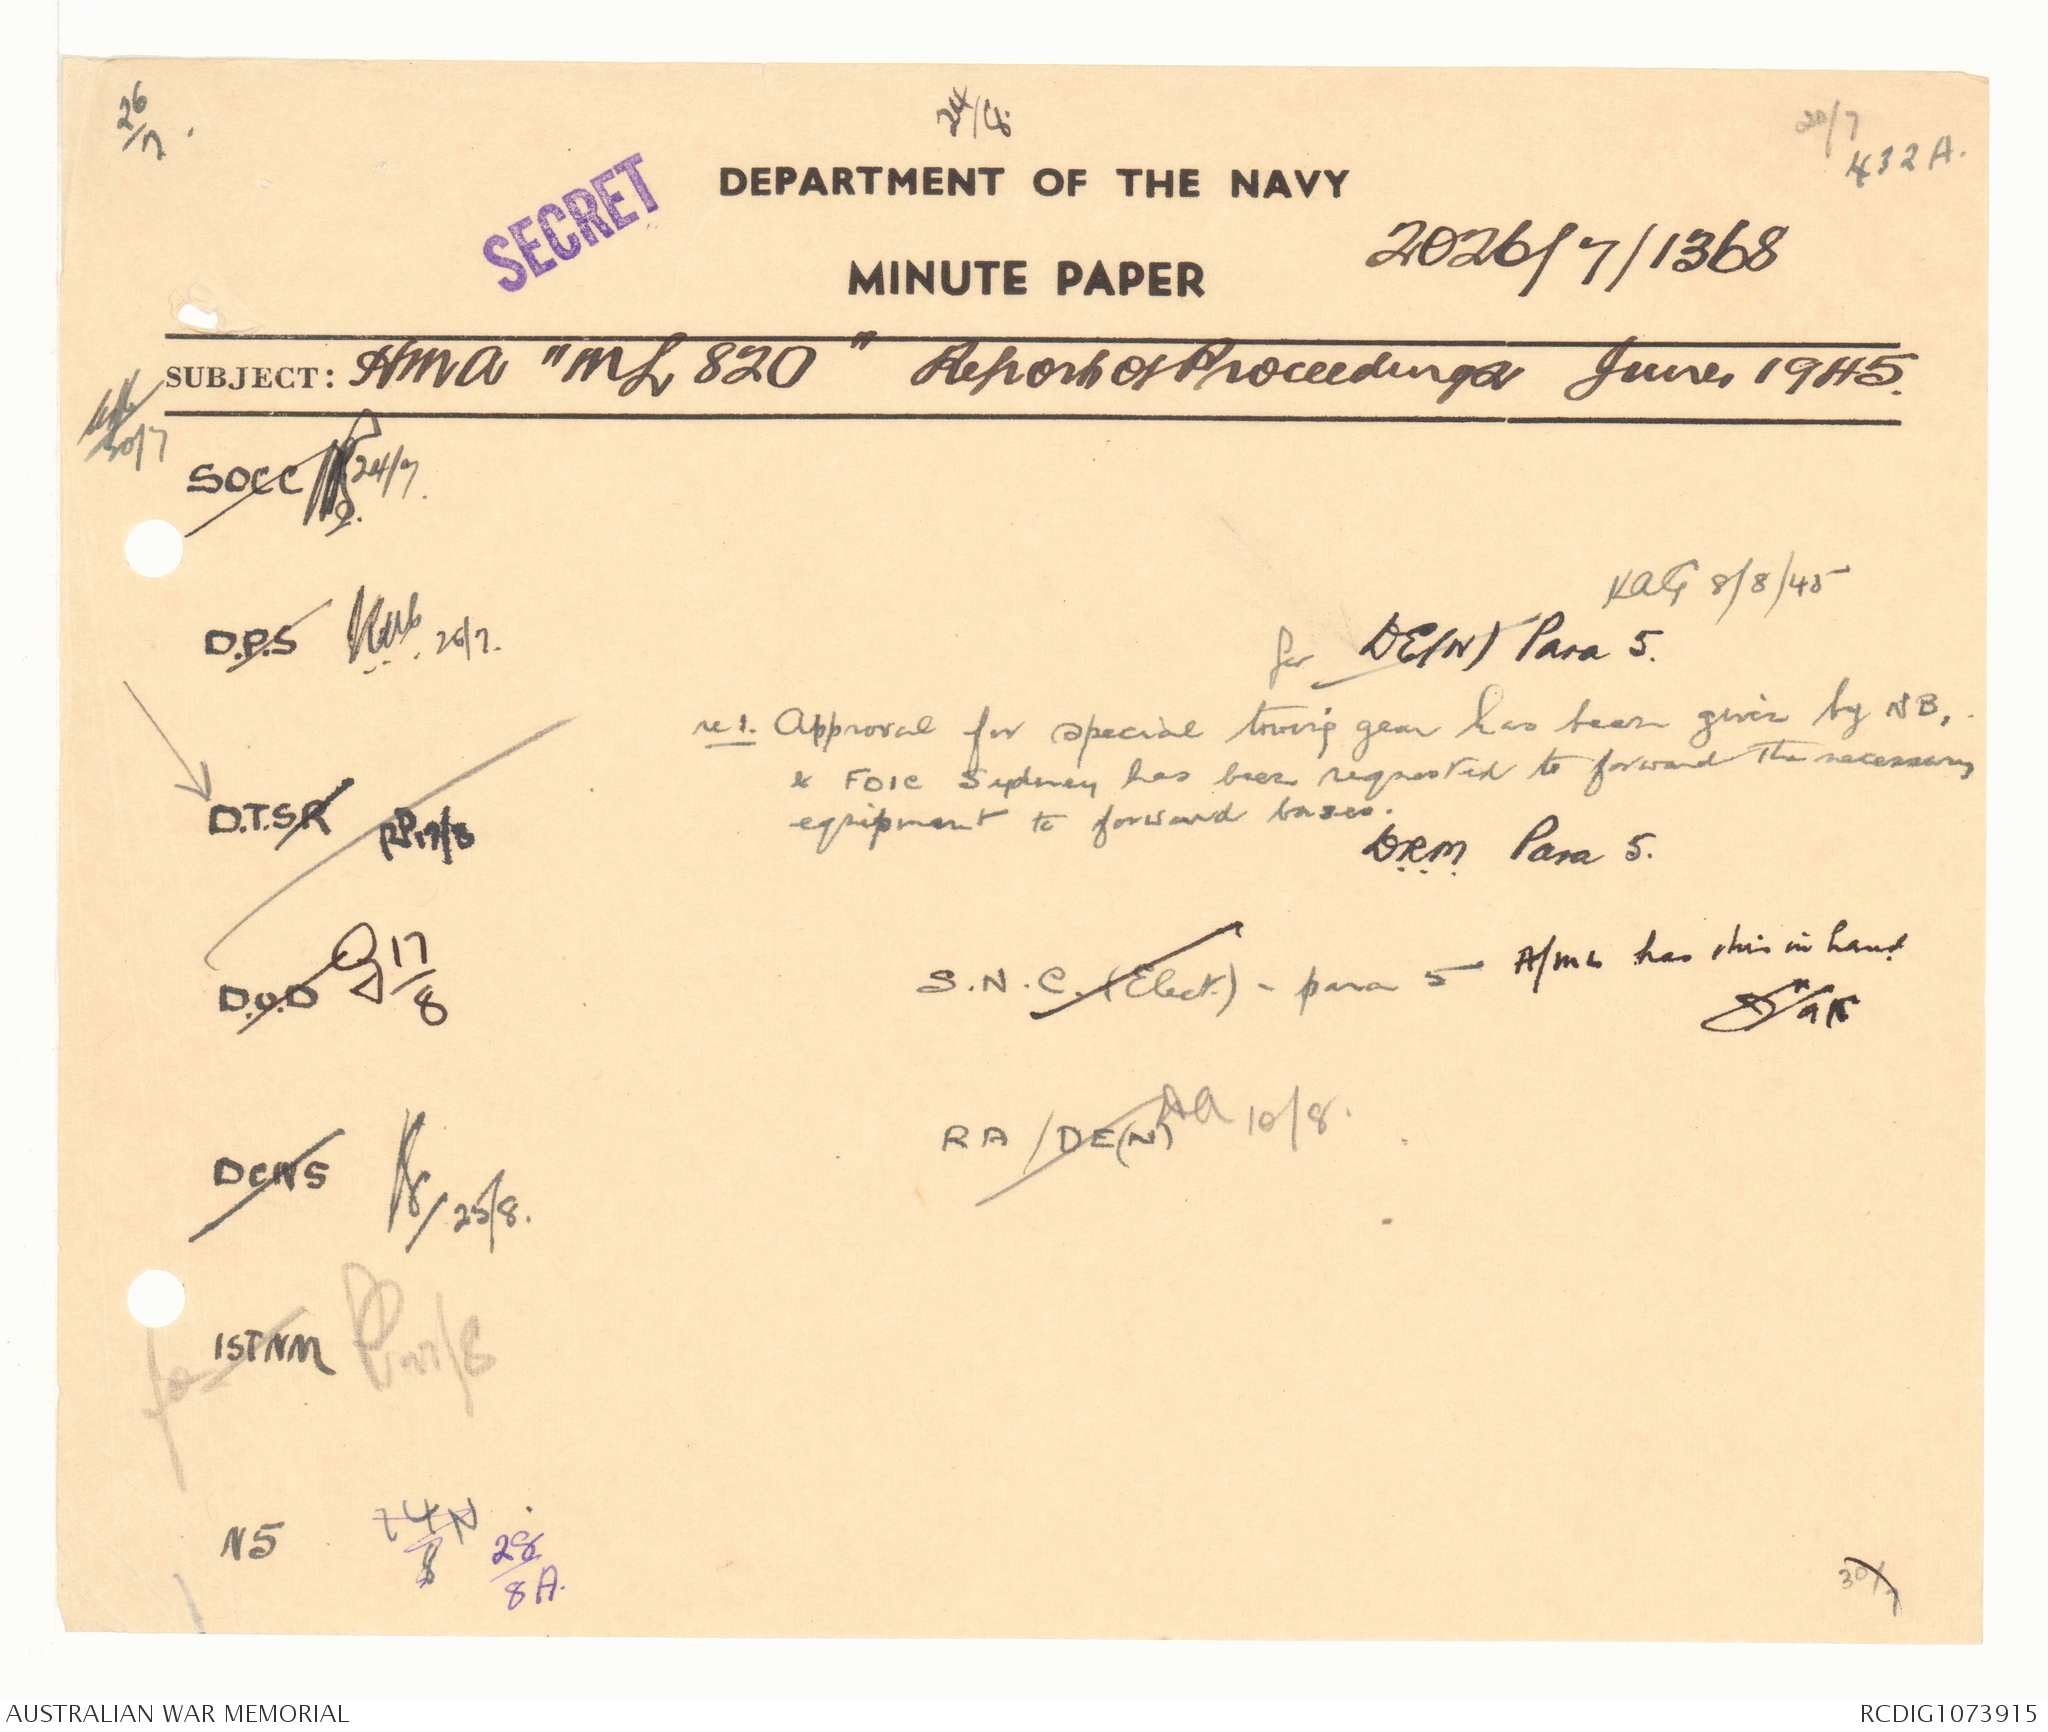 26/7.
24/8.
20/7
432A.
SECRET
DEPARTMENT OF THE NAVY
2026/7/1368
MINUTE PAPER
SUBJECT: HMA "ML 820" Report of Proceedings June, 1945.
30/7
SOCC 24/7.
KAG 8/8/45
D.P.S 26/7.
for DE(N) Para 5.
re 1. Approval for special towing gear has been given by NB,
& FOIC Sydney has been requested to forward the necessary
equipment to forward bases.
D.T.S.R RP 17/8
D.R.M. Para 5.
D.O.D 17/8
S.N.C. (Elect.) - para 5 A/ML has this in hand
RA/DE(N) AA 10/8.
DCNS 25/8.
for 1STNM 27/8
N5 24N/8 28/8A.
30/7
AUSTRALIAN WAR MEMORIAL RCDIG1073915